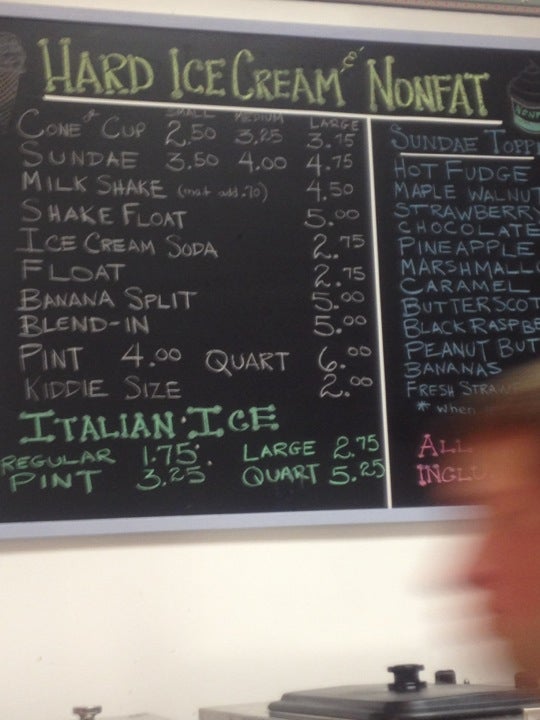 HARD ICE CREAM & NONFAT
SMALL MEDIUM LARGE
CONE & CUP 2.50 3.25 3.75
SUNDAE 3.50 4.00 4.75
MILK SHAKE (malt add .70) 4.50
SHAKE FLOAT 5.00
ICE CREAM SODA 2.75
FLOAT 2.75
BANANA SPLIT 5.00
BLEND-IN 5.00
PINT 4.00 QUART 6.00
KIDDIE SIZE 2.00
ITALIAN ICE
REGULAR 1.75 LARGE 2.75
PINT 3.25 QUART 5.25
SUNDAE TOPP
HOT FUDGE
MAPLE WALNUT
STRAWBERRY
CHOCOLATE
PINEAPPLE
MARSHMALLO
CARAMEL
BUTTERSCOT
BLACK RASPBE
PEANUT BUT
BANANAS
FRESH STRAW
* when
ALL
INCLU